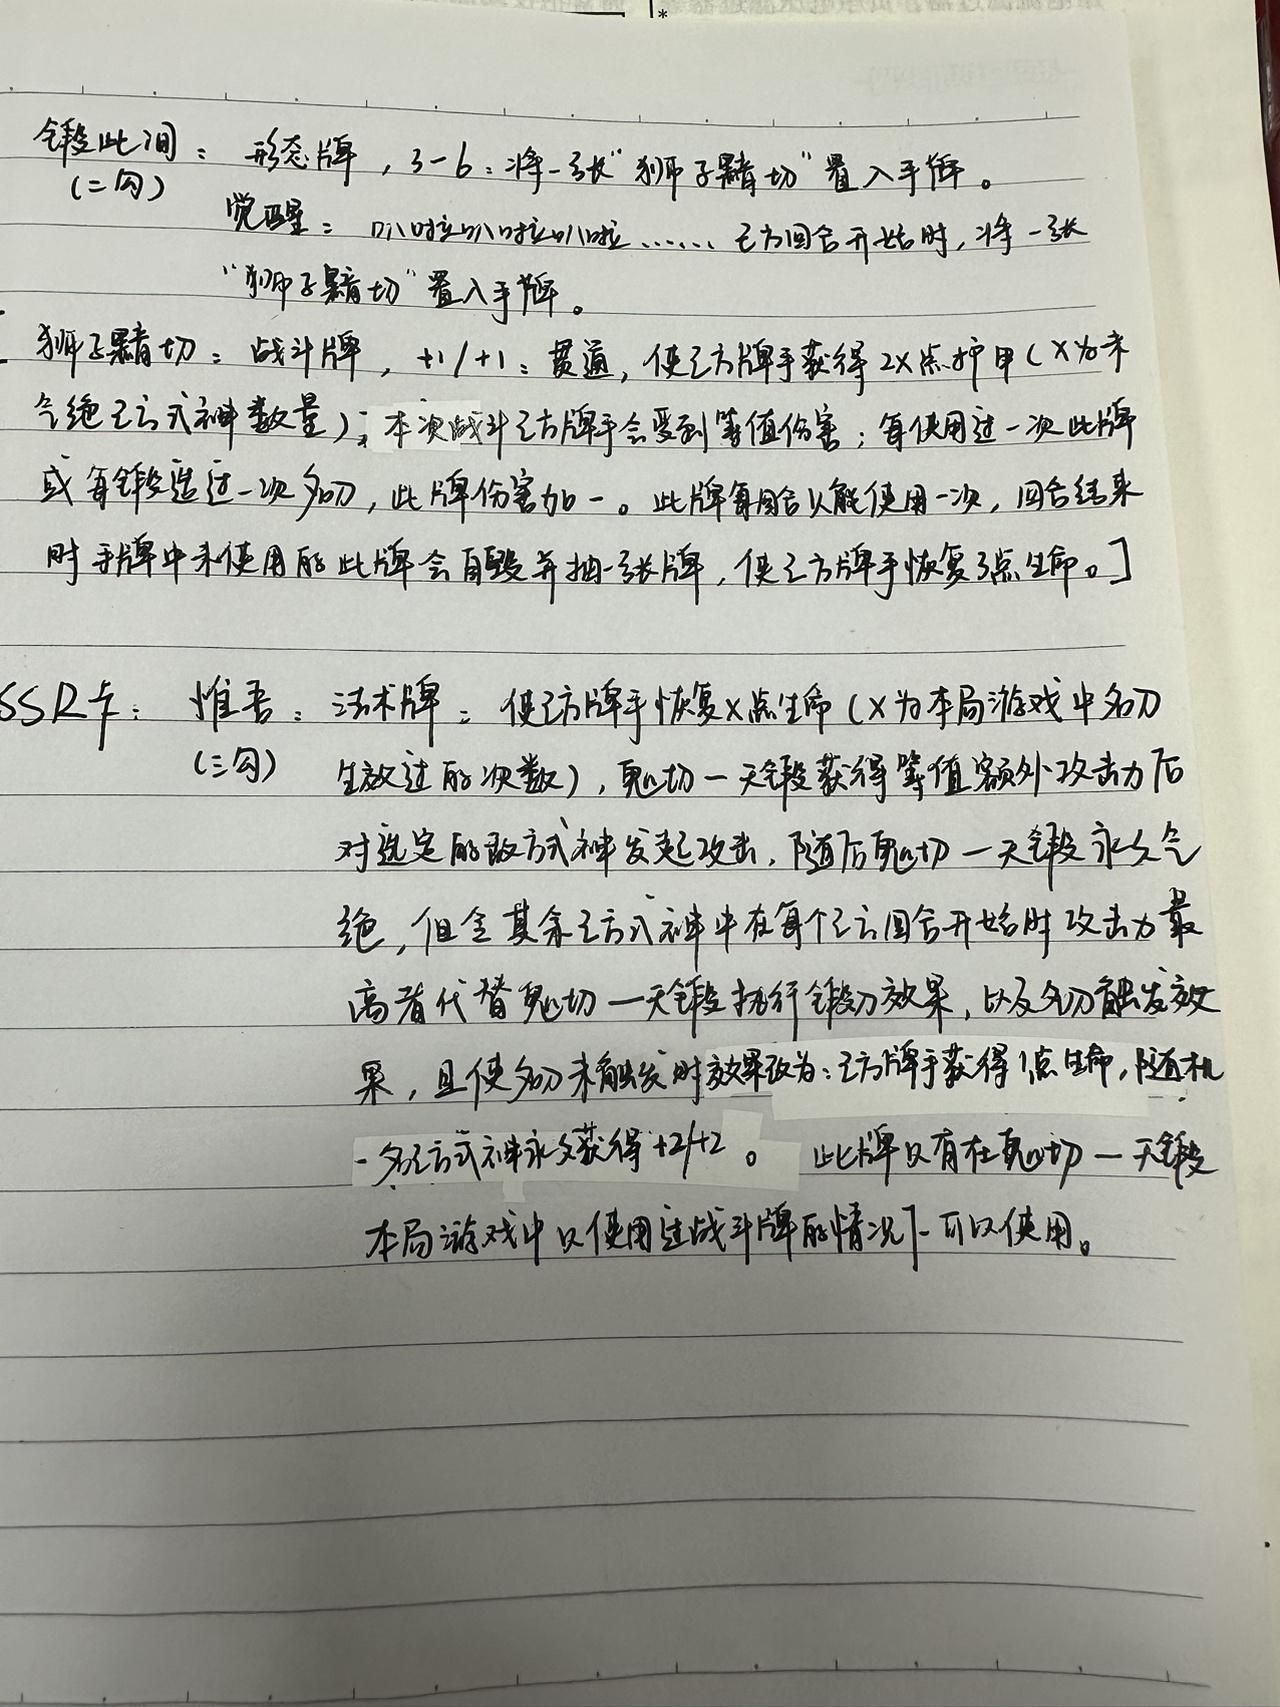 锻此间：形态牌，3-6：将一张“狮子黯切”置入手牌。
(二勾)
觉醒：叭啦叭啦叭啦……己方回合开始时，将一张
“狮子黯切”置入手牌。
狮子黯切：战斗牌，+1/+1：贯通，使己方牌手获得2X点护甲(X为未
气绝己方式神数量)；本次战斗己方牌手会受到等值伤害；每使用过一次此牌
或每锻造过一次名刀，此牌伤害加一。此牌每回合只能使用一次，回合结束
时手牌中未使用的此牌会自毁并抽一张牌，使己方牌手恢复3点生命。]
SSR卡：惟吾：法术牌：使己方牌手恢复X点生命(X为本局游戏中名刀
(三勾)
生效过的次数)，鬼切一天锻获得等值额外攻击力后
对选定的敌方式神发起攻击，随后鬼切一天锻永久气
绝，但令其余己方式神中在每个己方回合开始时攻击力最
高者代替鬼切一天锻执行锻刀效果，以及名刀触发效
果，且使名刀未触发时效果改为：己方牌手获得1点生命，随机
一名己方式神永久获得+2/+2。此牌只有在鬼切一天锻
本局游戏中只使用过战斗牌的情况下可以使用。